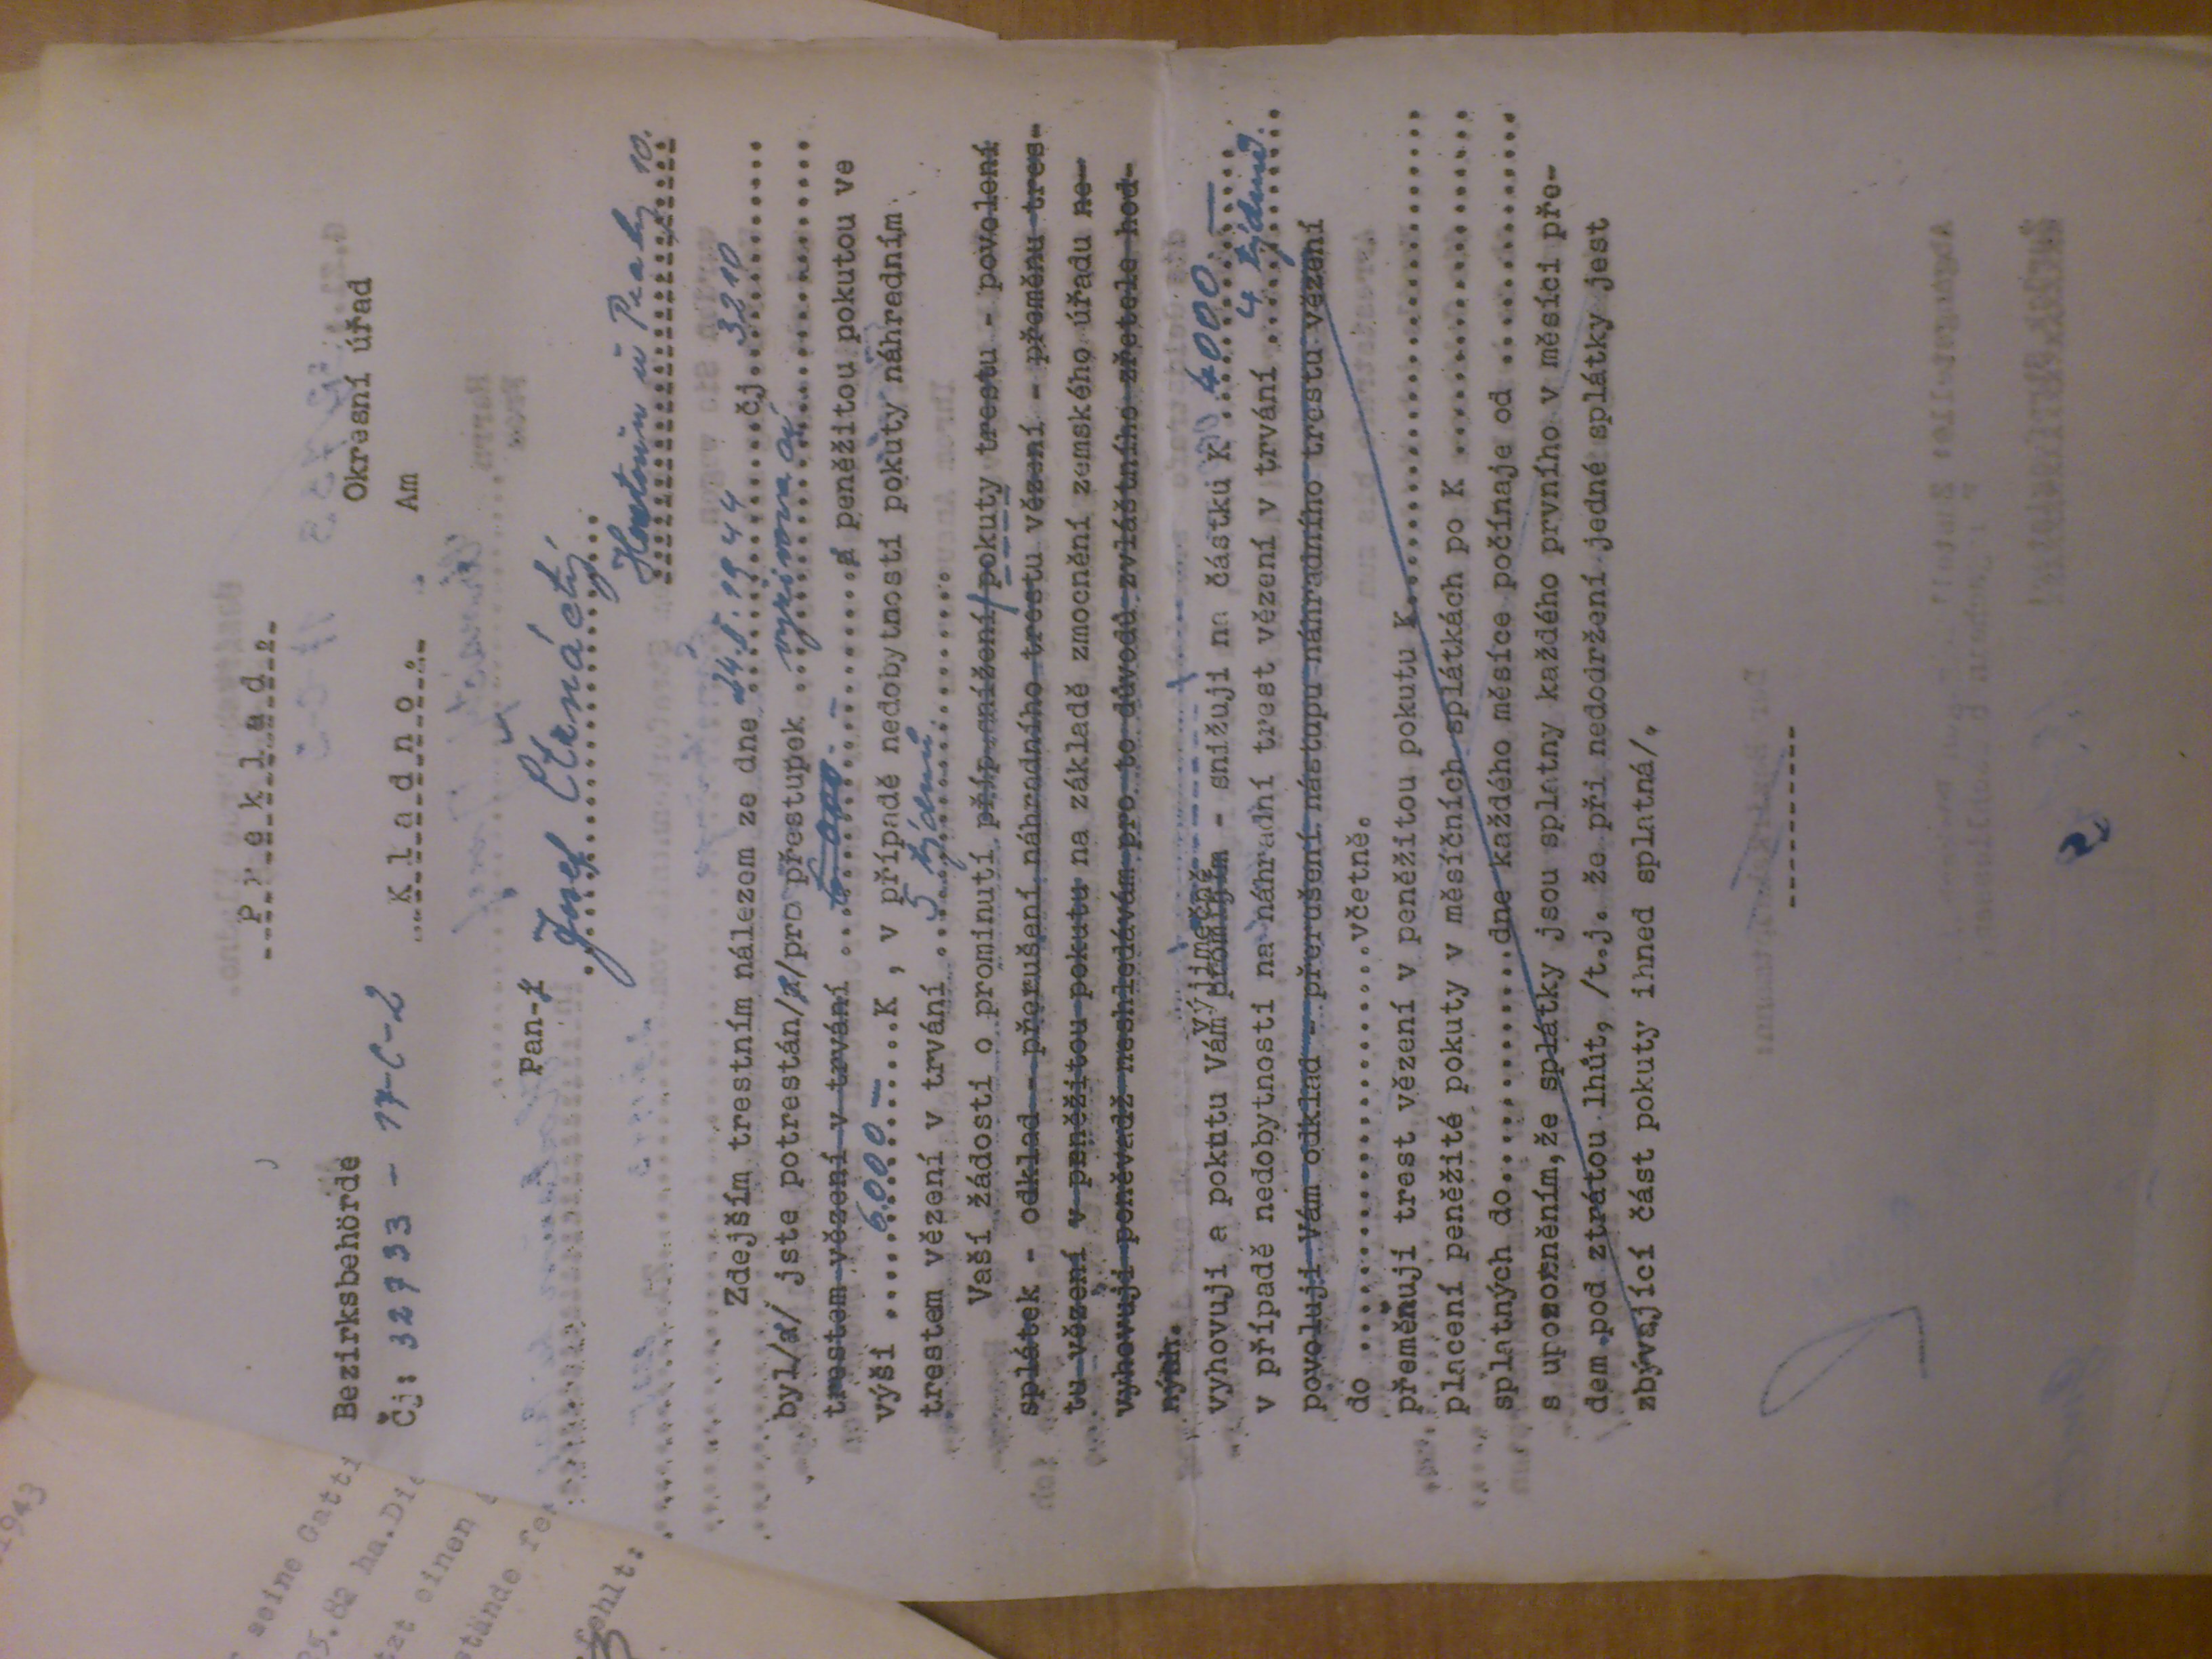 1943
seine Gatti
25.82 ha.Die
tzt einen
stände fe
fehlt:
Překlad.
Bezirksbehörde
Okresní úřad
Čj: 32733 - 17-C-2
Kladno.
Am
Pan-í
Josef Čtrnáctý
Hostouň u Prahy 10.
Zdejším trestním nálezem ze dne 24.I.1944 čj. 3210
byl/a/ jste potrestán/a/pro přestupek vyživovací
trestem vězení v trvání 6.000.- a peněžitou pokutou ve
výši 6.000.- K , v případě nedobytnosti pokuty náhradním
trestem vězení v trvání 5 týdnů.
Vaší žádosti o prominutí příp snížení/pokuty trestu - povolení
splátek - odklad - přerušení náhradního trestu vězení - přeměnu tres-
tu vězení v peněžitou pokutu na základě zmocnění zemského úřadu ne-
vyhovuji poněvadž neshledávám pro to důvodů zvláštního zřetele hod-
ných.
výjimečně
vyhovuji a pokutu Vám promíjím - snižuji na částku K 4000.-
v případě nedobytnosti na náhradní trest vězení v trvání 4 týdnů.
povoluji Vám odklad - přerušení nástupu náhradního trestu vězení
do ......................včetně.
přeměňuji trest vězení v peněžitou pokutu K...........................
placení peněžité pokuty v měsíčních splátkách po K ...................
splatných do.............dne každého měsíce počínaje od ..............
s upozorněním,že splátky jsou splatny každého prvního v měsíci pře-
dem pod ztrátou lhůt, /t.j. že při nedodržení jedné splátky jest
zbývající část pokuty ihned splatná/.